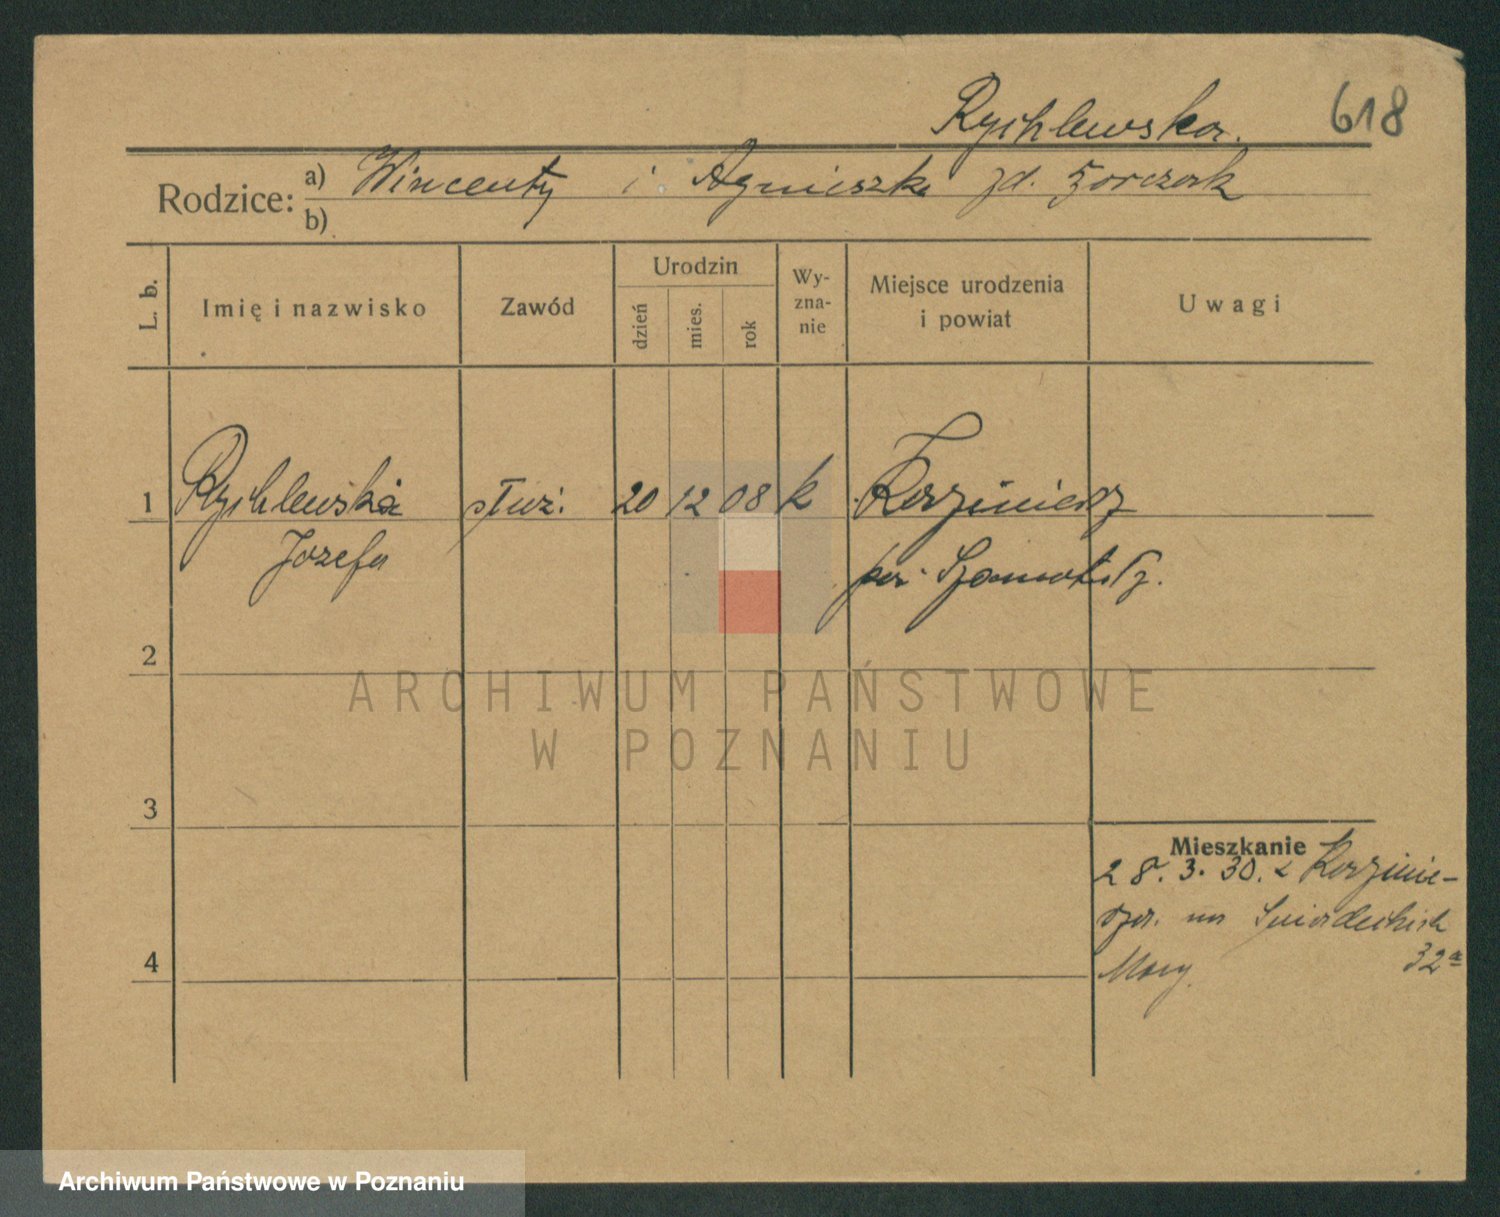 Rychlewska.
618
Rodzice: a) Wincenty i Agnieszka zd.
b)
L. b.
Imię i nazwisko
Zawód
Urodzin
dzień
mies.
rok
Wy-
zna-
nie
Miejsce urodzenia
i powiat
Uwagi
1 Rychlewska służ. 20 12 08 k Koźmierz
Józefa pow. Szamotuły.
2
ARCHIWUM PAŃSTWOWE
W POZNANIU
3
Mieszkanie
28.3.30. z
na Śniadeckich
32a
4
Archiwum Państwowe w Poznaniu